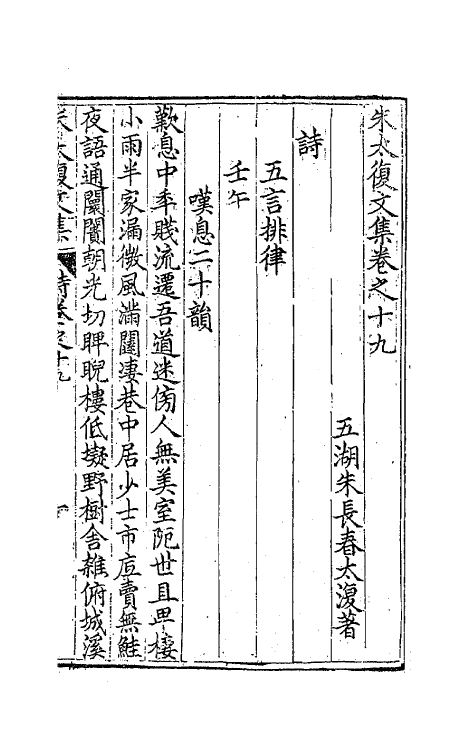 朱太復文集卷之十九
五湖朱長春太復著
詩
五言排律
壬午
嘆息二十韻
歎息中年賤流遷吾道迷傍人無美室阨世且卑棲
小雨半家漏微風滿闥凄巷中居少士市店賣無鮭
夜語通闤闠朝光切睥睨樓低礙野樹舍雜俯城溪
朱太復文集 詩卷之十九